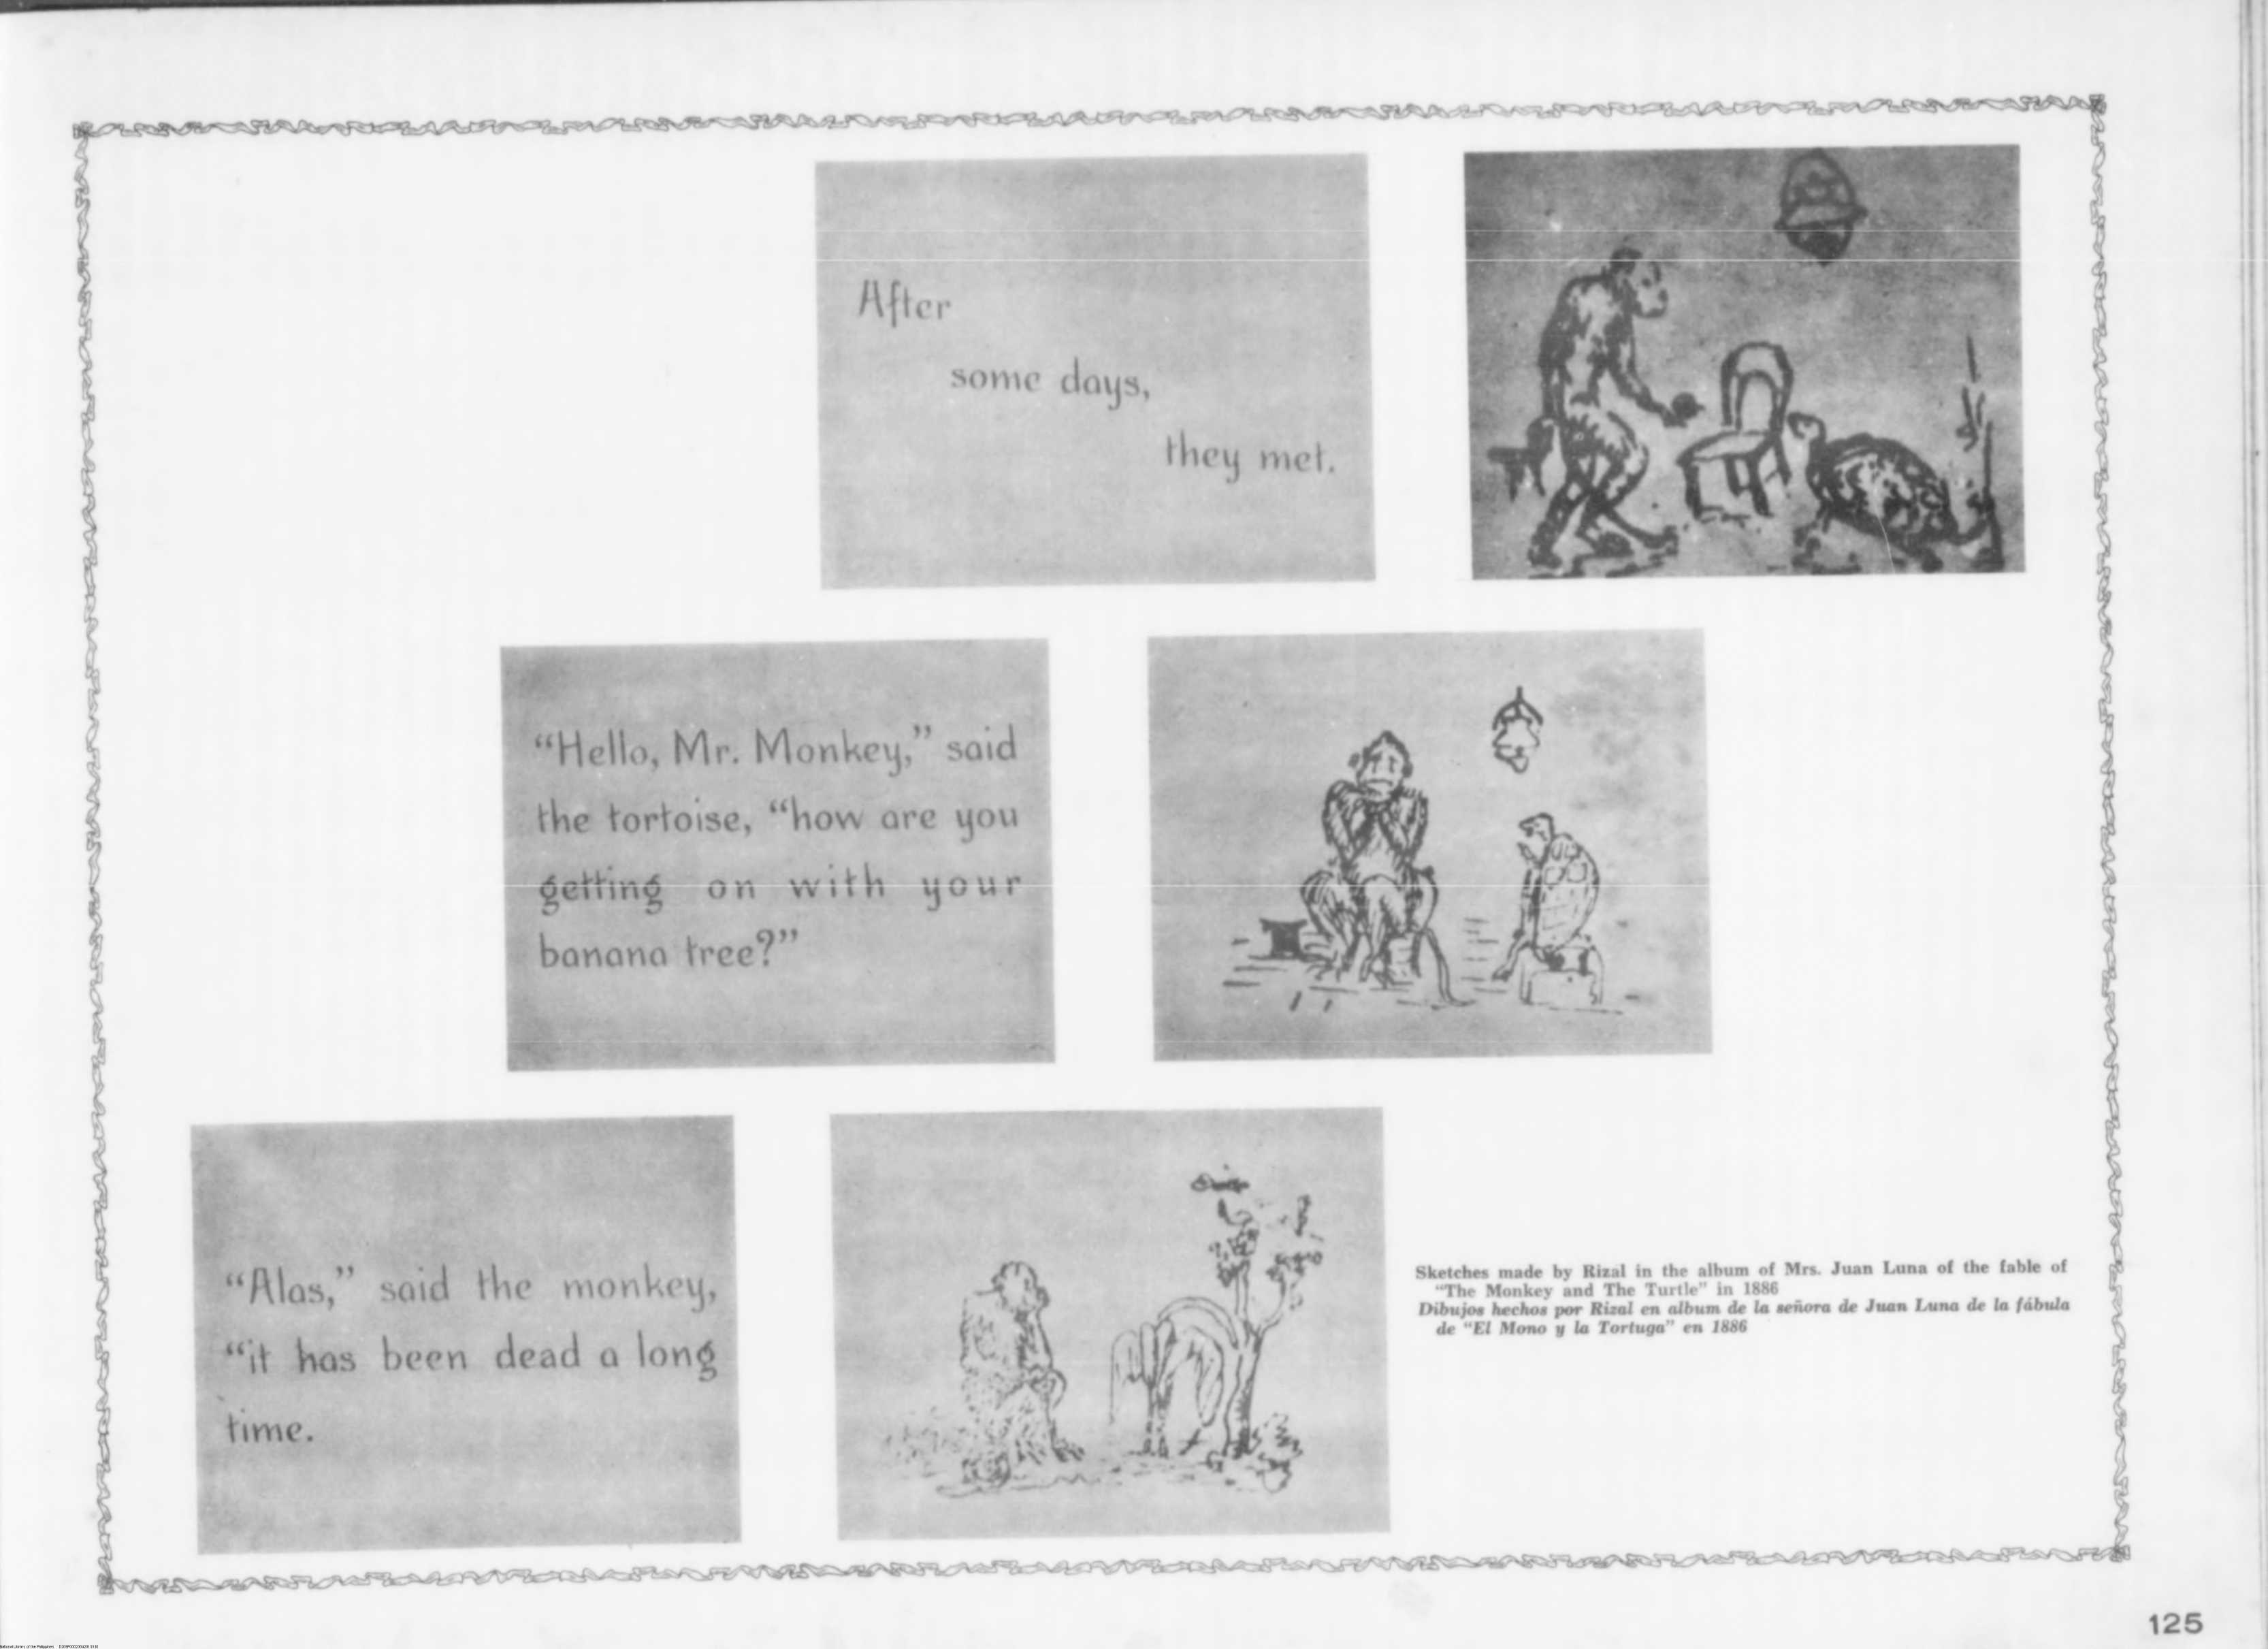 After
some days,
they met.
“Hello, Mr. Monkey,” said
the tortoise, “how are you
getting on with your
banana tree?”
“Alas,” said the monkey,
“it has been dead a long
time.
Sketches made by Rizal in the album of Mrs. Juan Luna of the fable of
“The Monkey and The Turtle” in 1886
Dibujos hechos por Rizal en album de la señora de Juan Luna de la fábula
de “El Mono y la Tortuga” en 1886
125
National Library of the Philippines